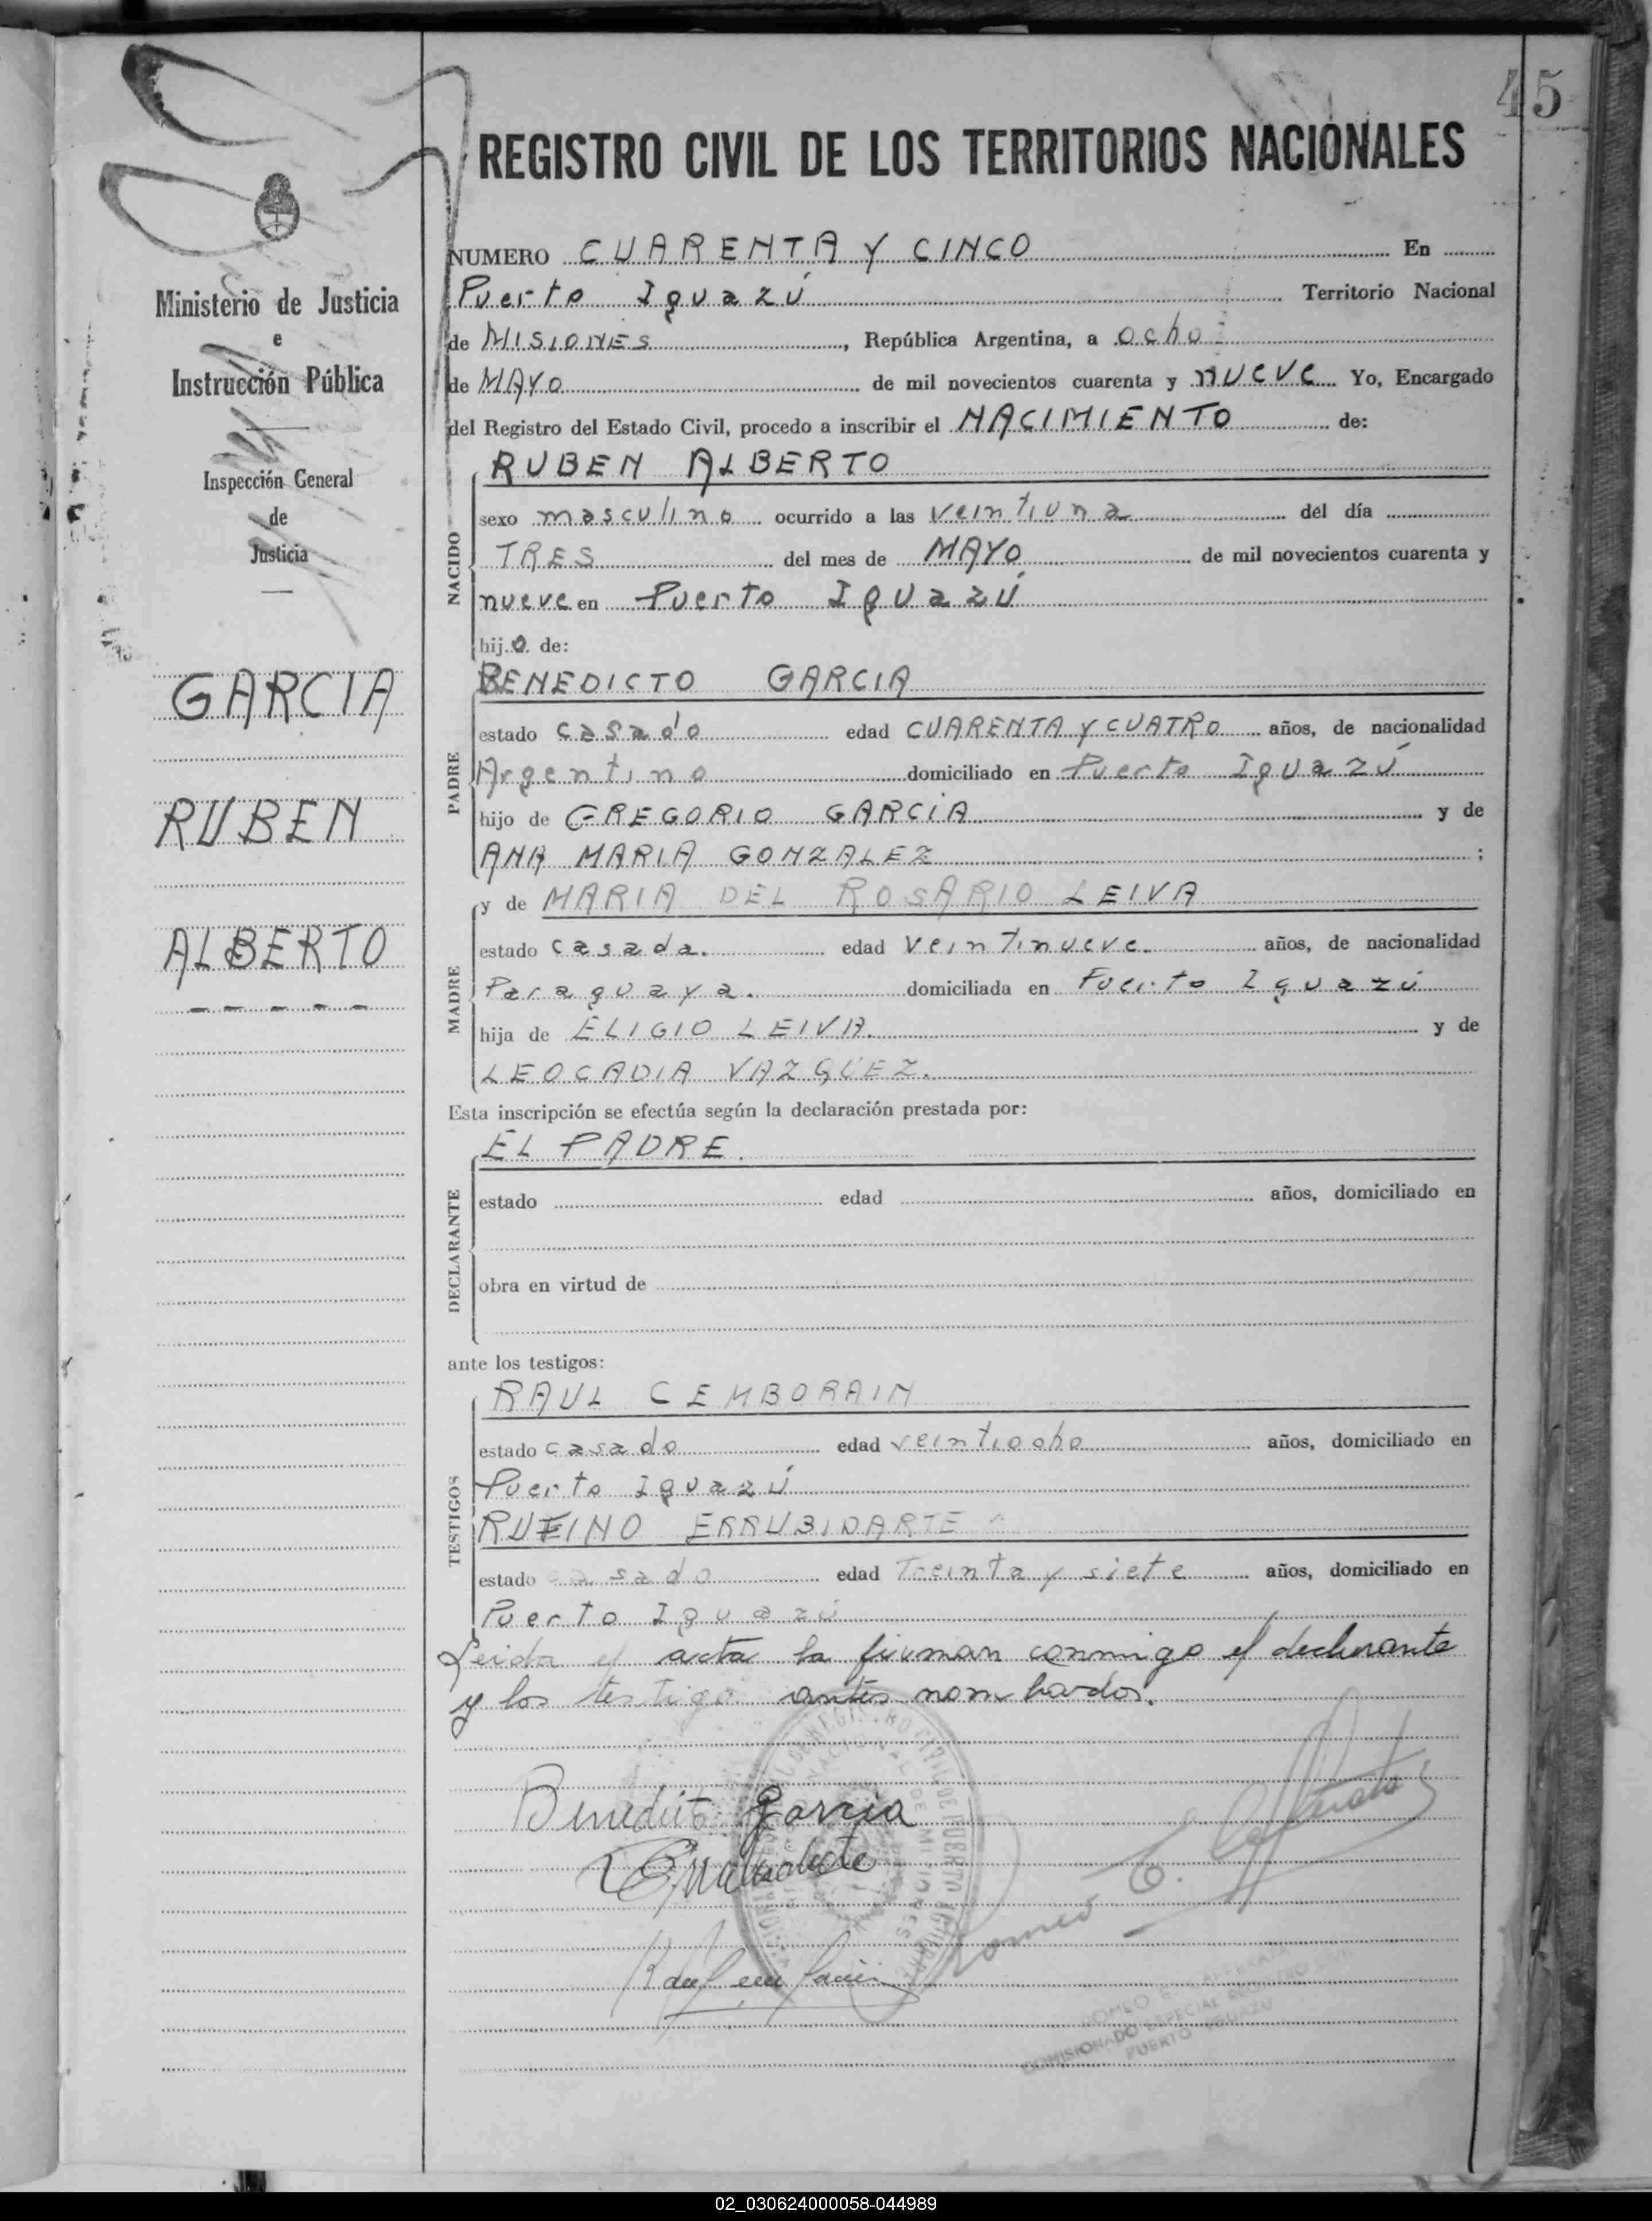 45
REGISTRO CIVIL DE LOS TERRITORIOS NACIONALES
Ministerio de Justicia
e
Instrucción Pública
Inspección General
de
Justicia
GARCIA
RUBEN
ALBERTO
NUMERO CUARENTA Y CINCO En
Puerto Iguazú Territorio Nacional
de MISIONES, República Argentina, a ocho
de MAYO de mil novecientos cuarenta y nueve Yo, Encargado
del Registro del Estado Civil, procedo a inscribir el NACIMIENTO de:
NACIDO
RUBEN ALBERTO
sexo masculino ocurrido a las veintiuna del día
TRES del mes de MAYO de mil novecientos cuarenta y
nueve en Puerto Iguazú
hijo de:
PADRE
BENEDICTO GARCIA
estado casado edad CUARENTA Y CUATRO años, de nacionalidad
Argentino domiciliado en Puerto Iguazú
hijo de GREGORIO GARCIA y de
ANA MARIA GONZALEZ ;
MADRE
y de MARIA DEL ROSARIO LEIVA
estado casada. edad veintinueve. años, de nacionalidad
Paraguaya. domiciliada en Puerto Iguazú
hija de ELIGIO LEIVA. y de
LEOCADIA VAZQUEZ.
Esta inscripción se efectúa según la declaración prestada por:
DECLARANTE
EL PADRE.
estado edad años, domiciliado en
obra en virtud de
ante los testigos:
TESTIGOS
RAUL CEMBORAIN
estado casado edad veintiocho años, domiciliado en
Puerto Iguazú
RUFINO ERRUBIDARTE
estado casado edad Treinta y siete años, domiciliado en
Puerto Iguazú
Leida el acta la firman conmigo el declarante
y los testigos antes nombrados.
Benedicto Garcia
Romeo E.
ROMEO E.
COMISIONADO ESPECIAL REGISTRO CIVIL
PUERTO IGUAZU
02_030624000058-044989